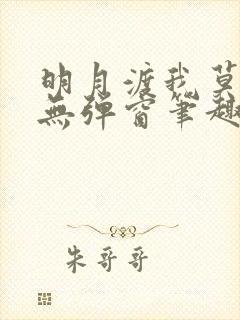 明月渡我莫
無彈窗筆趣
朱哥哥